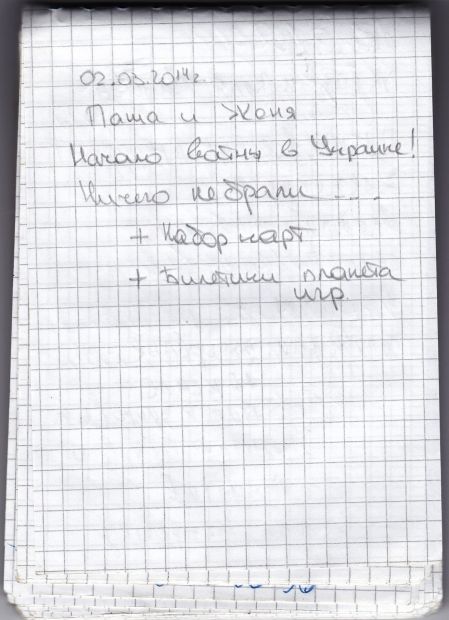 02.03.2014г.
Паша и Женя
Начало войны в Украине!
Ничего не брали ....
+ Набор карт
+ Билетики планета
игр.